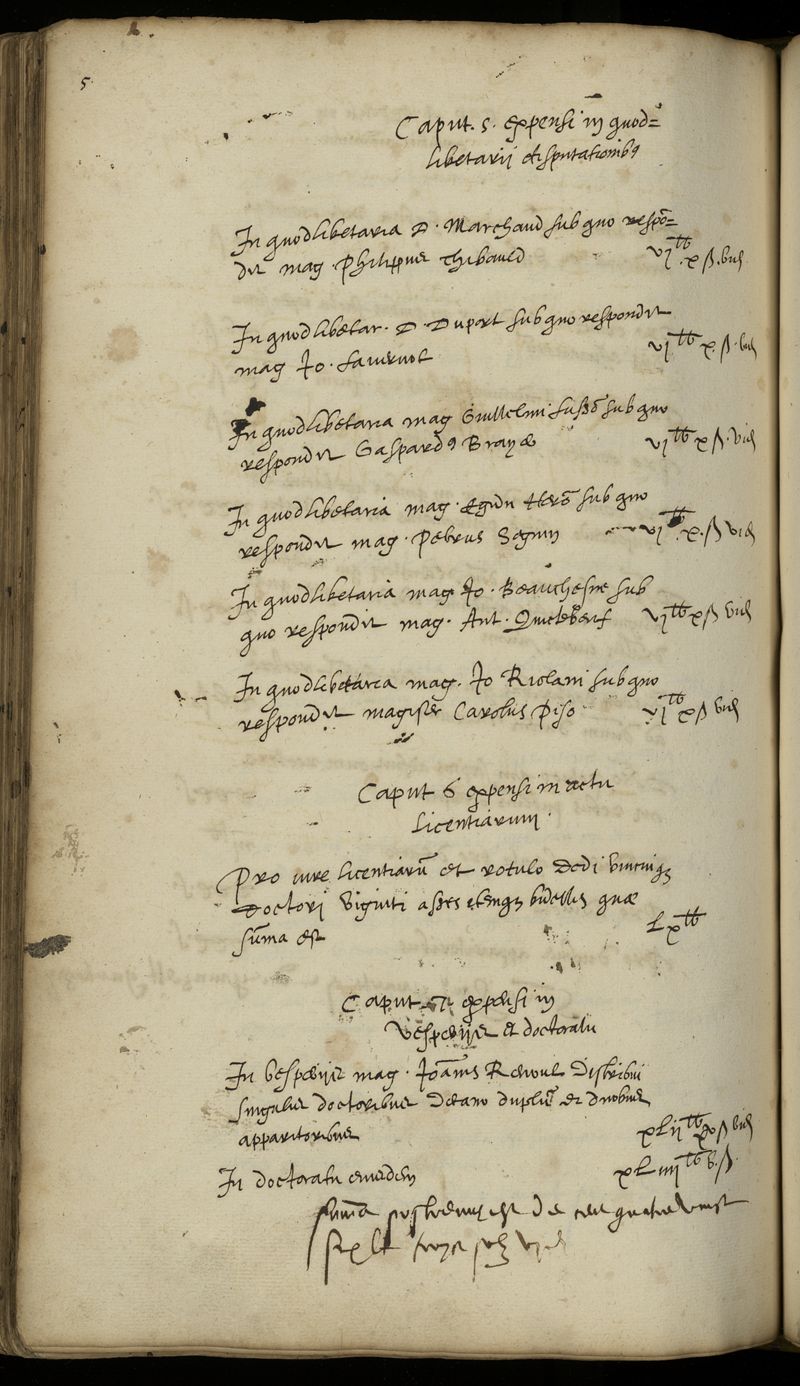 5
Caput. 5. expensi in quod=
libetarij disputationib9
In quodlibetaria D. Marchand sub quo respō=
dit mag. Philippus Thibauld vj^tt. x ß. viđ
In quodlibetar. D. Duport sub quo respondit
mag Jo. Lavernot vj^tt x ß. viđ
In quodlibetaria mag Guillelmi sub quo
respondit Gaspard9 Brayæ vj^tt x ß. viđ
In quodlibetaria mag. Egidii sub quo
respondit mag. Petrus Seguin vj^tt. x. ß viđ
In quodlibetaria mag Jo. Beauchesne sub
quo respondit mag. Ant. vj^tt x ß viđ
In quodlibetaria mag. Jo Riolani sub quo
respondit magister Carolus Piso vj^tt x ß viđ
Caput 6 expensi in actu
Licentiarum.
Pro iure licentiarū et rotulo dedi unicuiq3
Doctori viginti asses etemq3 bidellis quæ
sūma est Lx^tt
Caput 7 expensi in
vesperijs et doctoratu
In vesperijs mag. Joānis Distribui
singulis doctoribus Decano duplū et duobus
apparitoribus xLij^tt ß viđ
In doctoratu eiusdem xLiiij^tt ß.